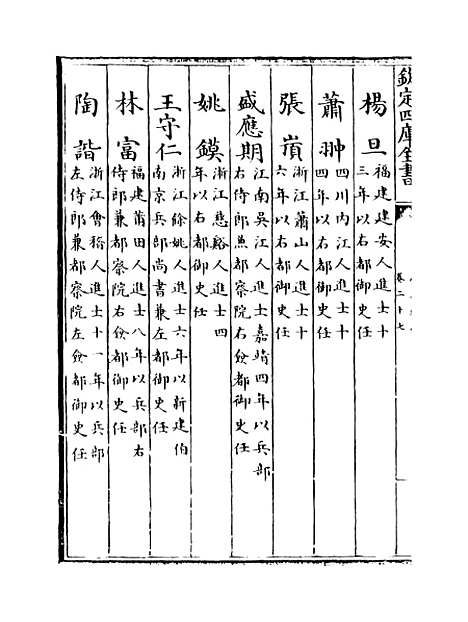 欽定四庫全書
卷二十七
楊旦 福建建安人進士十
三年以右都御史任
蕭翀 四川內江人進士十
四年以右都御史任
張嵿 浙江蕭山人進士十
六年以右都御史任
盛應期 江南吳江人進士嘉靖四年以兵部
右侍郎兼都察院右僉都御史任
姚鏌 浙江慈谿人進士四
年以右都御史任
王守仁 浙江餘姚人進士六年以新建伯
南京兵部尚書兼左都御史任
林富 福建莆田人進士八年以兵部右
侍郎兼都察院右僉都御史任
陶諧 浙江會稽人進士十一年以兵部
左侍郎兼都察院左僉都御史任